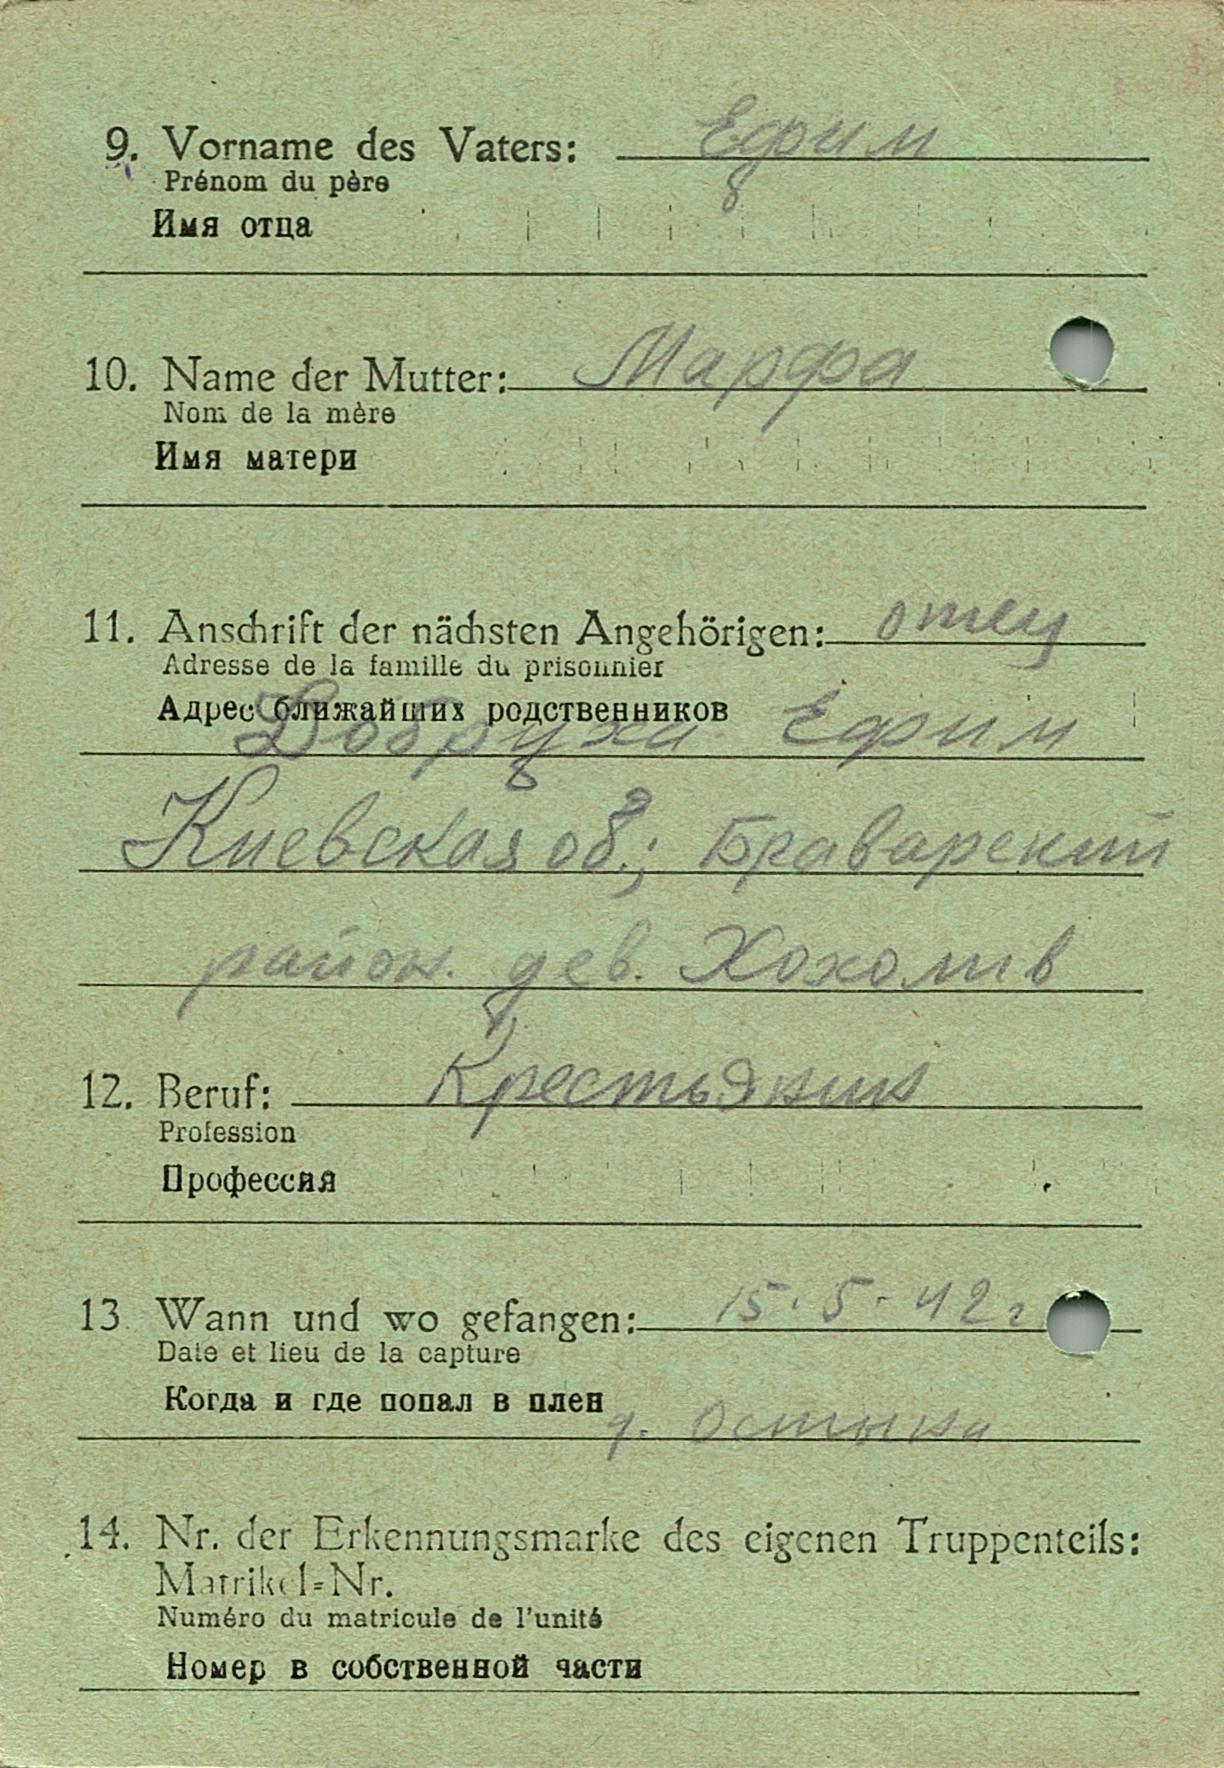 9. Vorname des Vaters: Ефим
Prénom du père
Имя отца
10. Name der Mutter: Марфа
Nom de la mère
Имя матери
11. Anschrift der nächsten Angehörigen: отец
Adresse de la famille du prisonnier
Адрес ближайших родственников
Добруха Ефим
Киевская об.; Браварский
район. дев. Хохолив
12. Beruf: Крестьянин
Profession
Профессия
13 Wann und wo gefangen: 15.5.42г
Date et lieu de la capture
Когда и где попал в плен
д.
14. Nr. der Erkennungsmarke des eigenen Truppenteils:
Matrikel=Nr.
Numéro du matricule de l'unité
Номер в собственной части